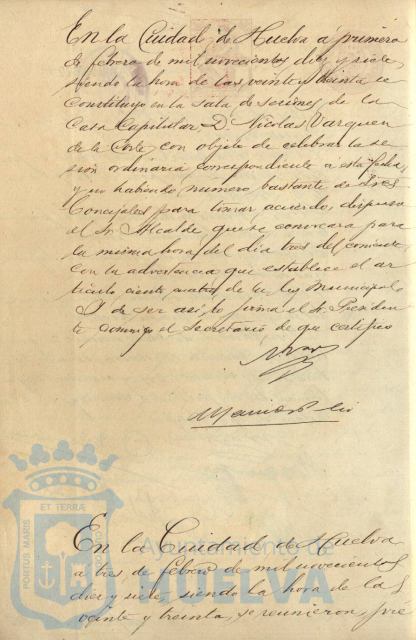 En la Ciudad de Huelva á primero
de febrero de mil novecientos diez y siete,
siendo la hora de las veinte y treinta se
constituyó en la sala de sesiones de la
Casa Capitular, D. Nicolas Vazquez
de la Corte, con objeto de celebrar la se
sion ordinaria correspondiente á esta fecha,
y no habiendo número bastante de Sres
Concejales para tomar acuerdo, dispuso
el Sr. Alcalde que se convocara para
la misma hora del dia tres del corriente
con la advertencia que establece el ar
ticulo ciento cuatro de la ley Municipal.
Y de ser así, lo firma el Sr. Presiden
te conmigo el Secretario de que certifico
En la Ciudad de Huelva
a tres de febrero de mil novecientos
diez y siete, siendo la hora de las
veinte y treinta, se reunieron pré
PORTUS MARIS
ET TERRÆ
Ayuntamiento de
HUELVA